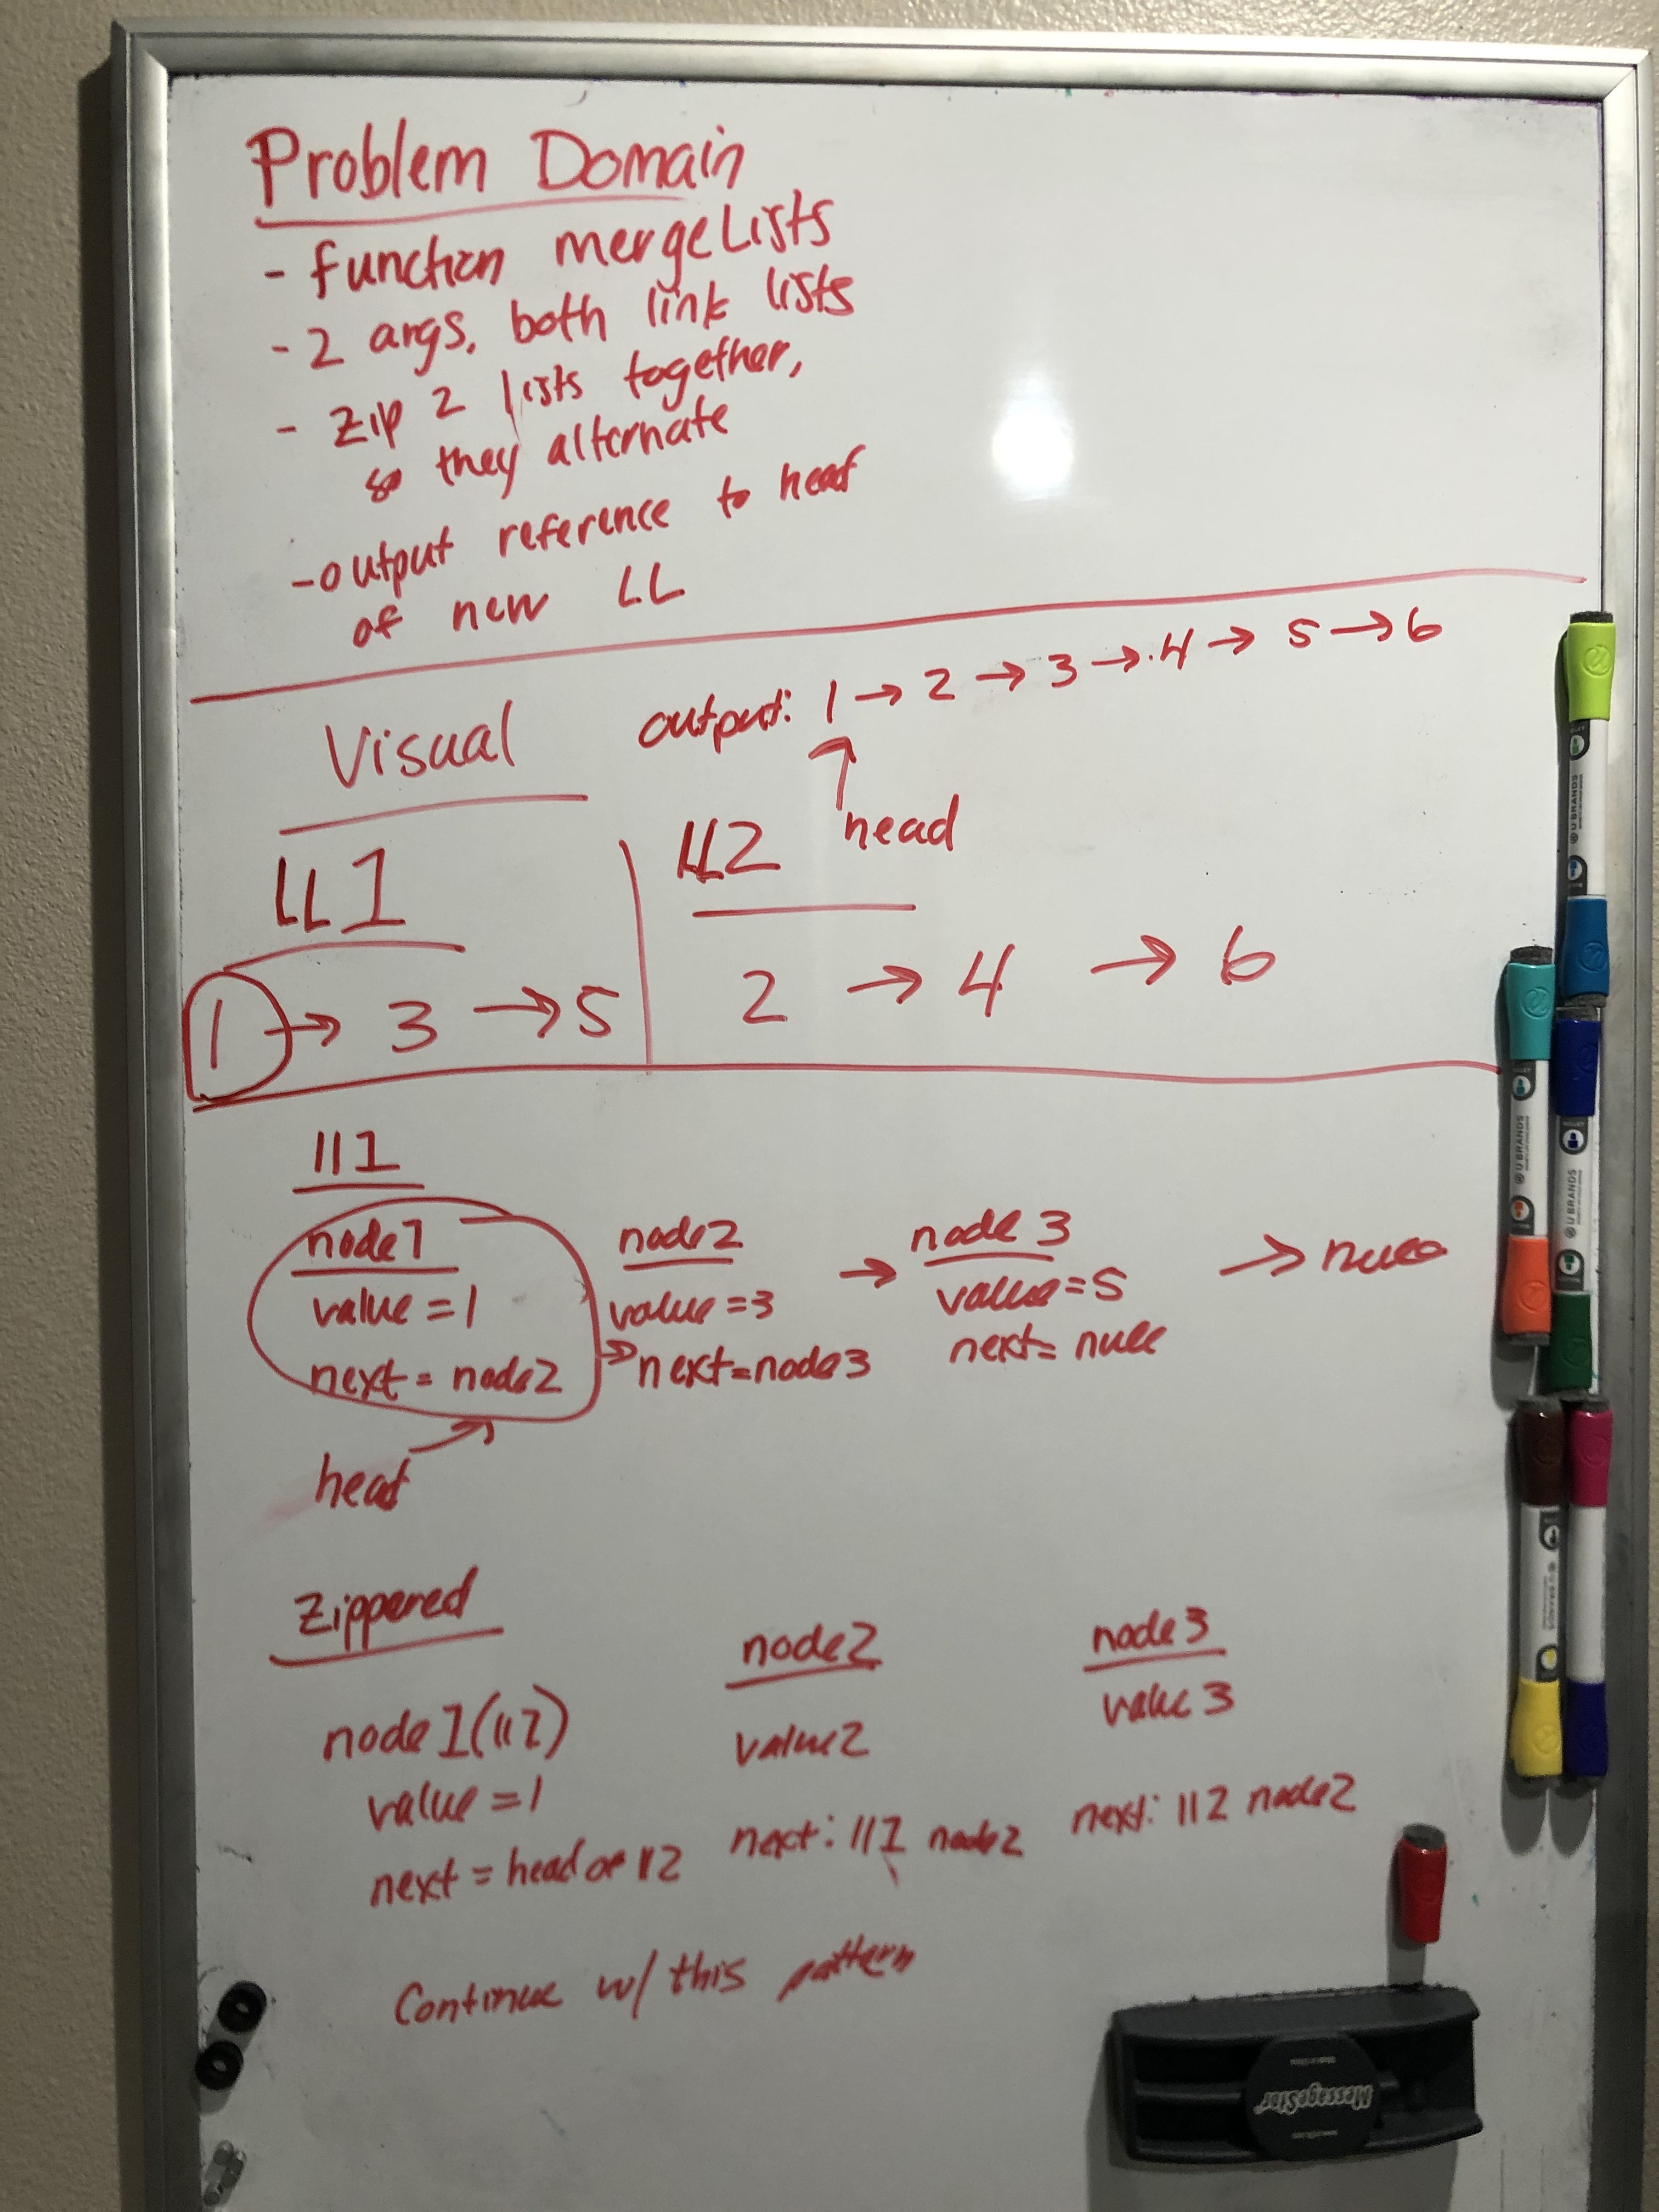 Problem Domain
- function mergeLists
- 2 args, both link lists
- Zip 2 lists together,
so they alternate
- output reference to head
of new LL
Visual
output: 1 → 2 → 3 → 4 → 5 → 6
head
LL1
1 → 3 → 5
LL2
2 → 4 → 6
ll1
node1
value = 1
next = node2
node2
value = 3
→ next = node3
→ node 3
value = 5
next = null
→ null
head
Zippered
node1 (ll1)
value = 1
next = head of ll2
node2
value 2
next: ll1 node2
node3
value 3
next: ll2 node2
Continue w/ this pattern
U BRANDS
U BRANDS
U BRANDS
MessageStor